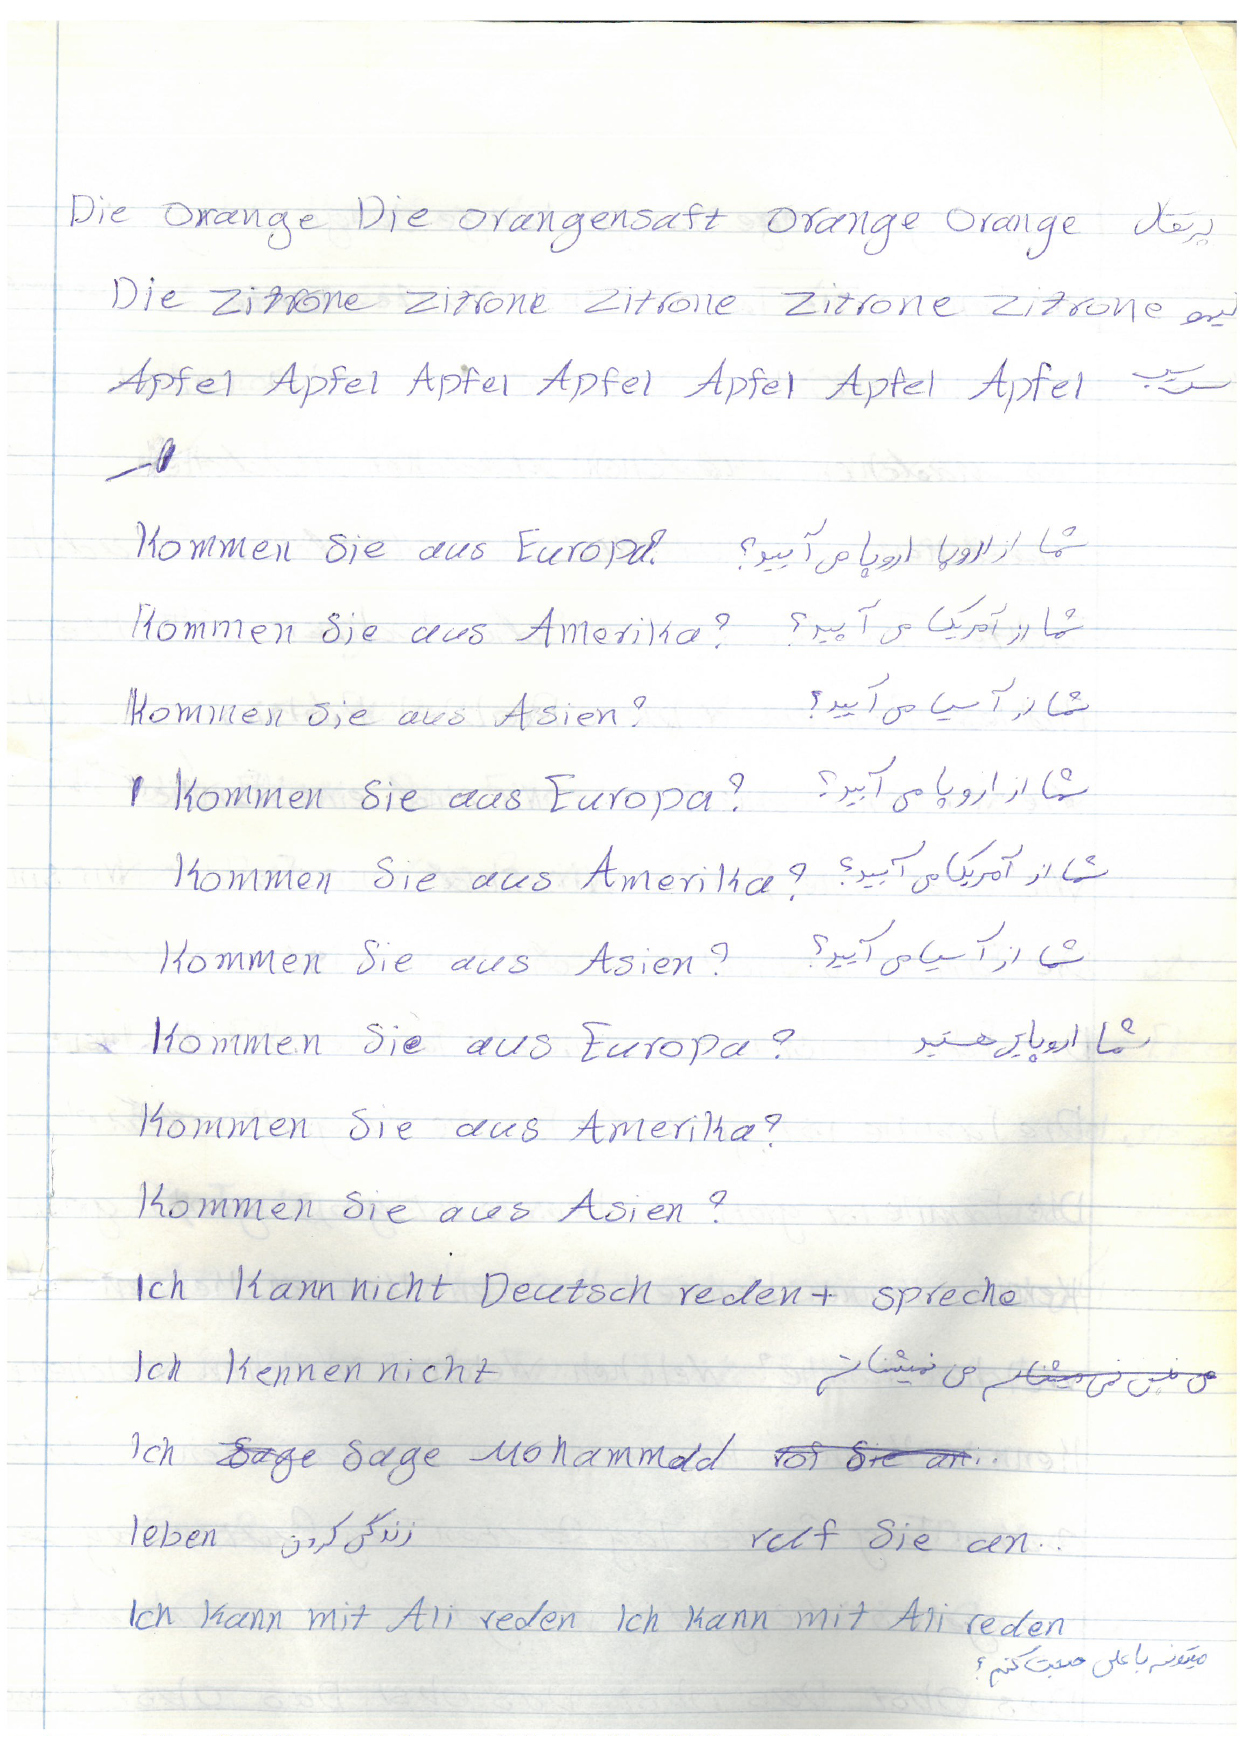 Die Orange Die orangensaft Orange Orange پرتقال
Die Zitrone Zitrone Zitrone Zitrone Zitrone لیمو
Apfel Apfel Apfel Apfel Apfel Apfel Apfel سیب
Kommen Sie aus Europa? شما از اروپا اروپا می آیید؟
Kommen Sie aus Amerika? شما از آمریکا می آیید؟
Kommen Sie aus Asien? شما از آسیا می آیید؟
Kommen Sie aus Europa? شما از اروپا می آیید؟
Kommen Sie aus Amerika? شما از آمریکا می آیید؟
Kommen Sie aus Asien? شما از آسیا می آیید؟
Kommen Sie aus Europa? شما اروپایی هستید
Kommen Sie aus Amerika?
Kommen Sie aus Asien?
Ich Kann nicht Deutsch reden + spreche
Ich Kennen nicht من نمیشناسم
Ich Sage Sage Mohammad
leben زندگی کردن ruf Sie an..
Ich Kann mit Ali reden Ich Kann mit Ali reden
میتونم با علی صحبت کنم؟